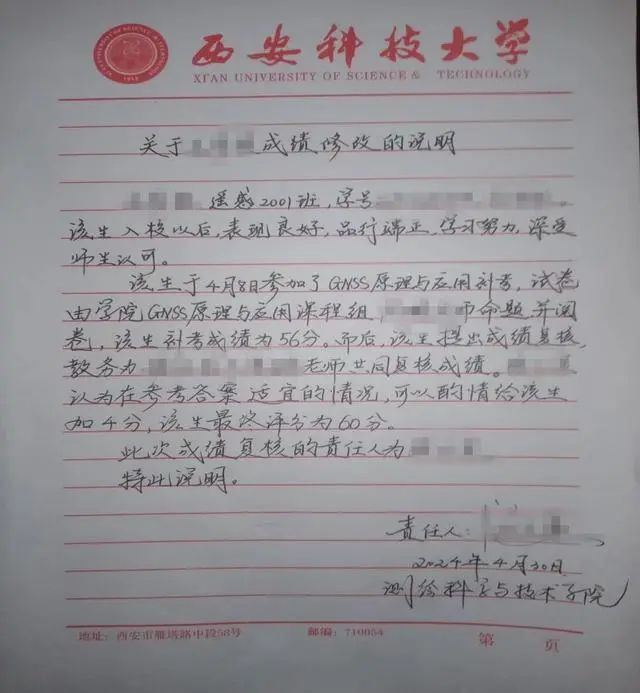 西安科技大学
XI'AN UNIVERSITY OF SCIENCE & TECHNOLOGY
关于 成绩修改的说明
遥感2001班,学号
该生入校以后,表现良好,品行端正,学习努力,深受
师生认可。
该生于4月8日参加了GNSS原理与应用补考,试卷
由学院GNSS原理与应用课程组 命题,并阅
卷,该生补考成绩为56分。而后,该生提出成绩复核,
教务为 老师共同复核成绩。
认为在参考答案适宜的情况,可以酌情给该生
加4分,该生最终评分为60分。
此次成绩复核的责任人为
特此说明。
责任人:
2024年4月30日
测绘科学与技术学院
地址:西安市雁塔路中段58号 邮编:710054 第 页